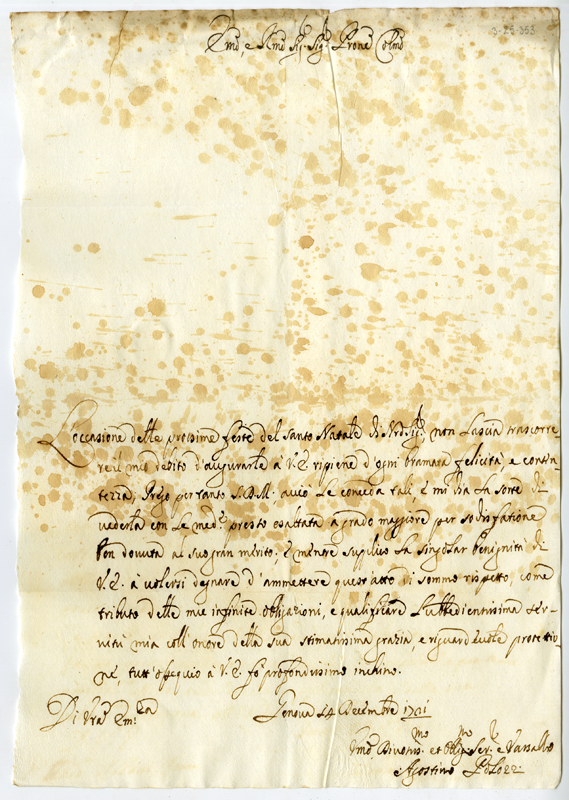 3-25-353
Em̃o, e Rmõ Sig.r Sig.r Prone Colmõ
L'occasione delle prossime feste del Santo Natale di N.ro Sig.r non lascia trascorre-
re il mio debito d'augurarle à V.E. ripiene d'ogni bramata felicità, e conten-
tezza. Prego pertanto S.D.M. acciò le conceda tali, e mi dia la sorte di
vederla con le med.e presto esaltata a grado maggiore per sodisfatione
ben dovuta al suo gran merito; E mentre supplico la singolar benignità di
V.E. à volersi degnare d'ammettere quest'atto di sommo rispetto, come
tributo delle mie infinite obligazioni, e qualificare l'ubbedientissima ser-
vitù mia coll'onore della sua stimatissima grazia, e riguardevole protettio-
ne, tutt'ossequio à V.E. fò profondissimo inchino.
Di Vra Em.za
Genova 14 Dicembre 1721
Vmõ, Divotis.mo et Oblig.mo Ser.r e Vassallo
Agostino